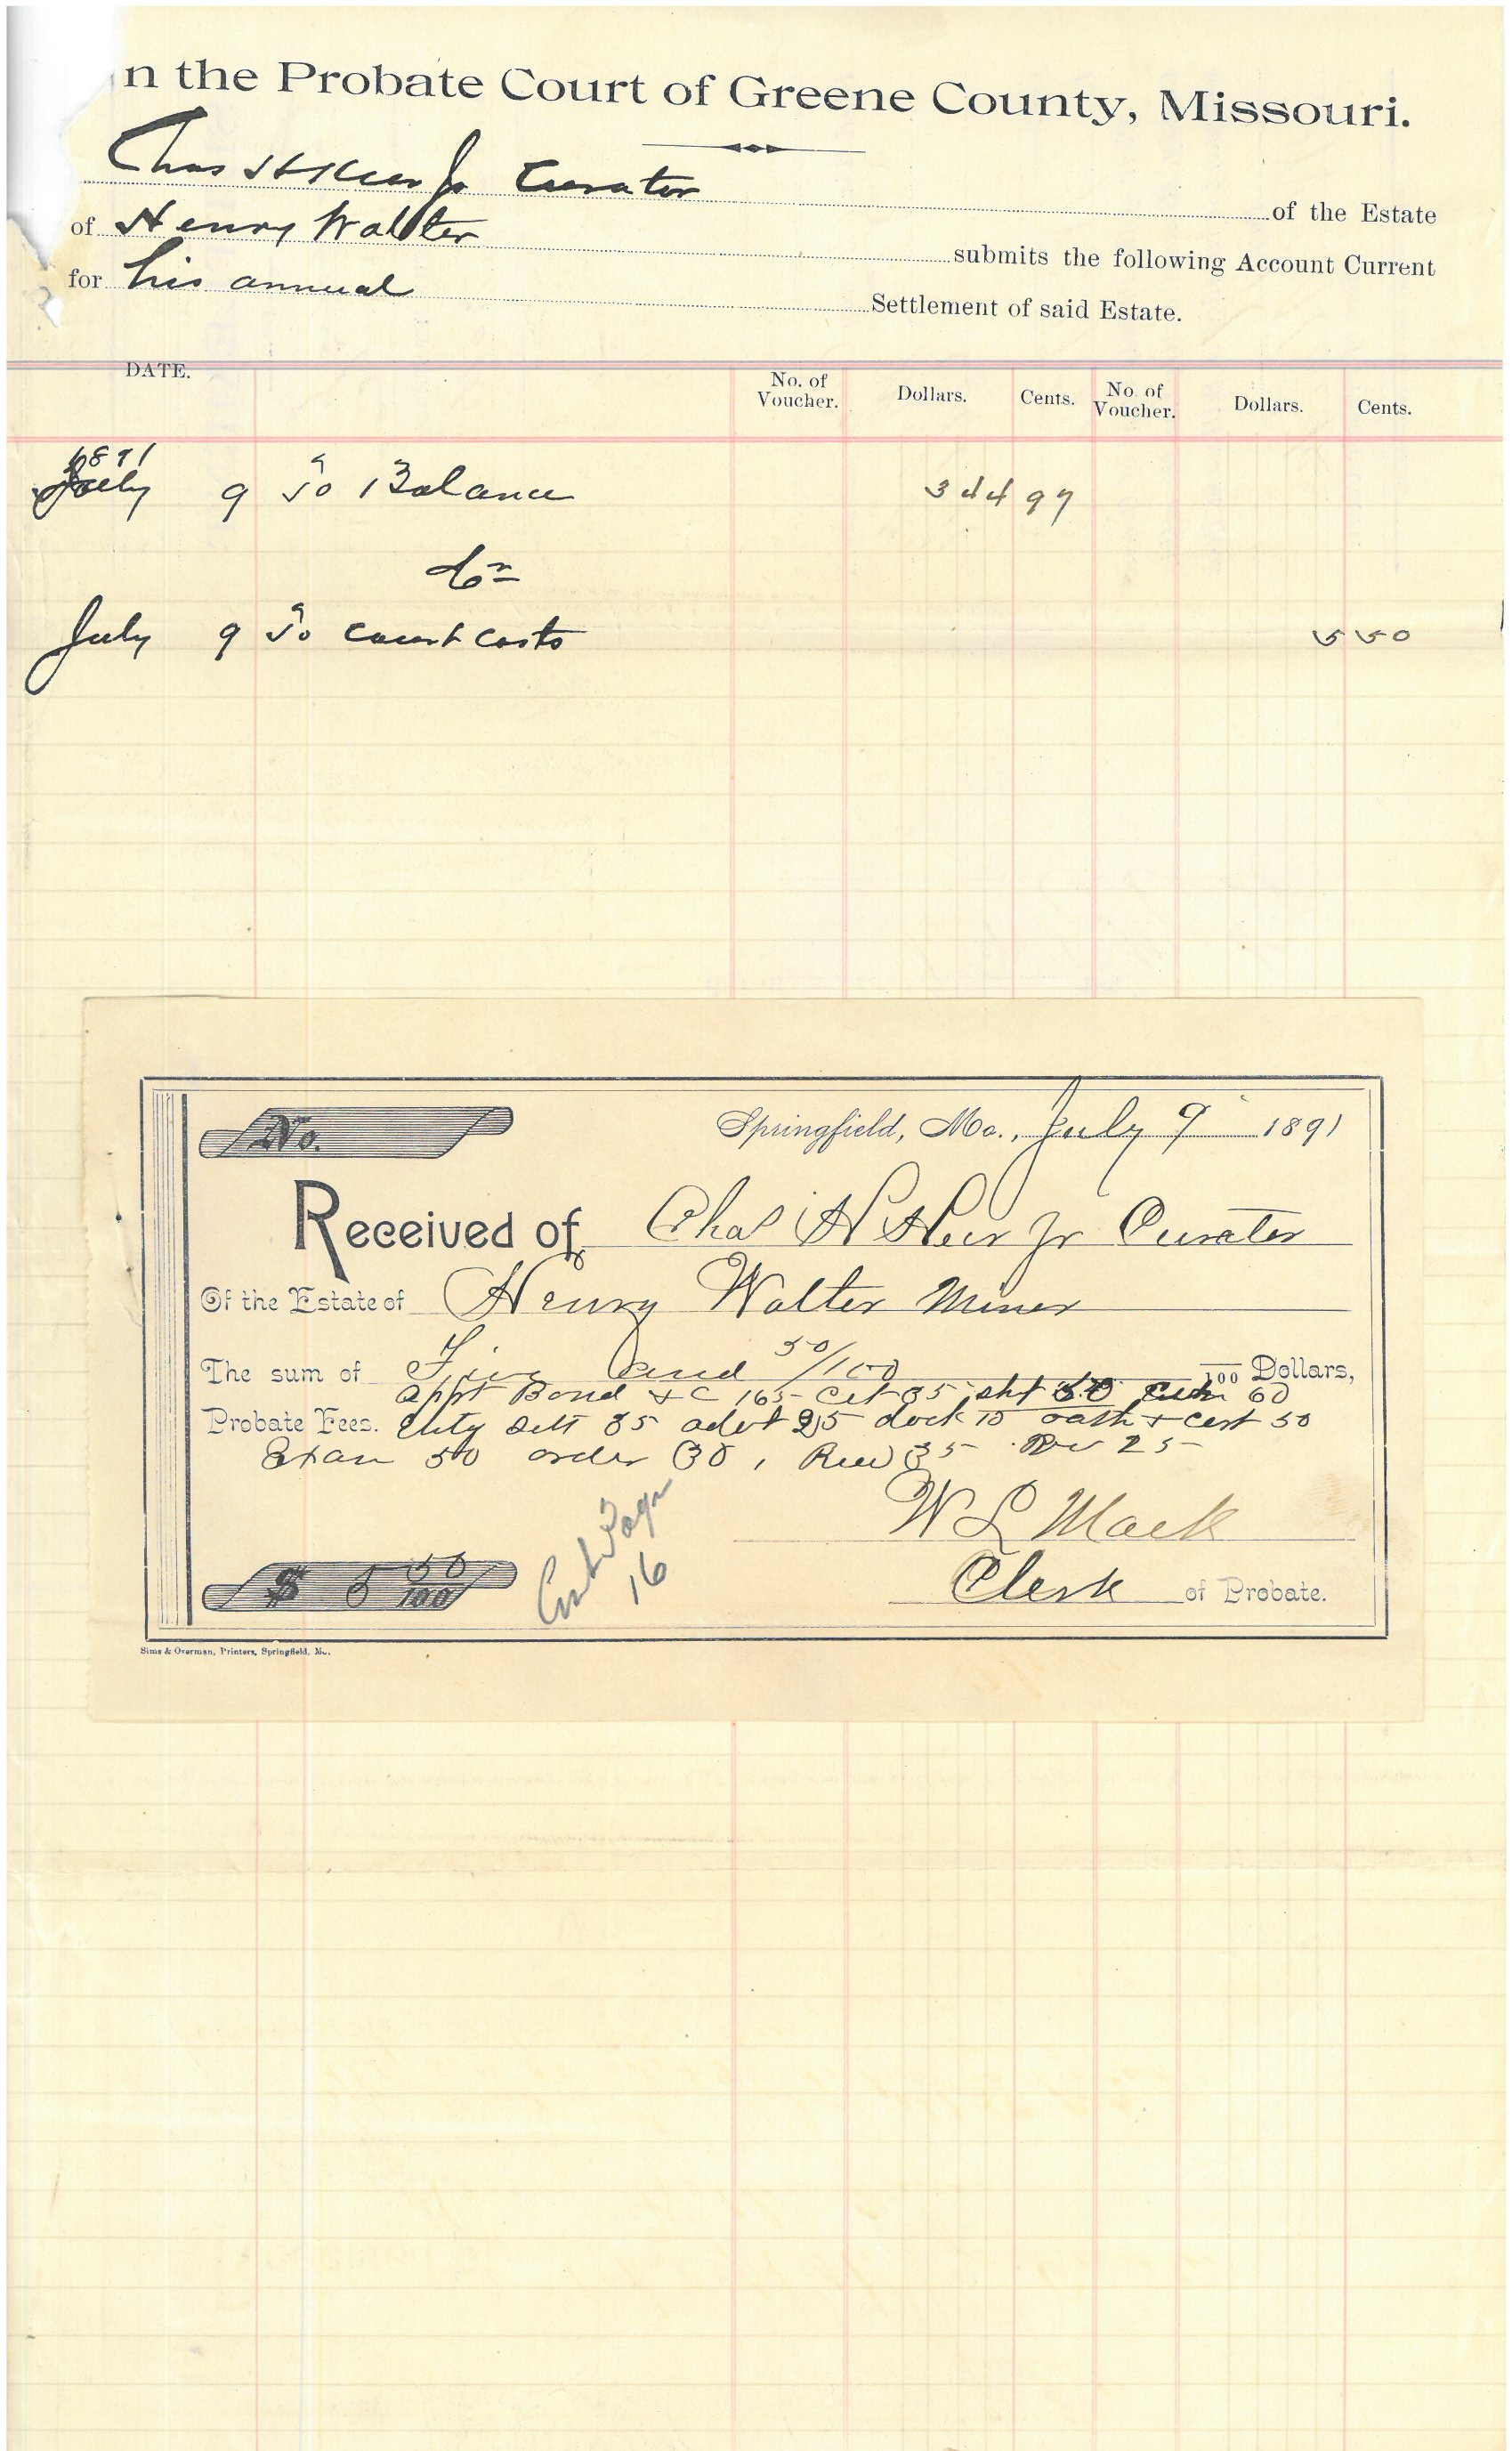 n the Probate Court of Greene County, Missouri.
Chas H Heer Jr Curator of the Estate
of Henry Walter submits the following Account Current
for his annual Settlement of said Estate.
DATE. No. of Voucher. Dollars. Cents. No. of Voucher. Dollars. Cents.
1891
July 9 To Balance 344 97
Cr
July 9 To court costs 5 50
No. Springfield, Mo., July 9 1891
Received of Chas H Heer Jr Curator
Of the Estate of Henry Walter Minor
The sum of Five and 50/100 100 Dollars,
appt Bond & C 165 Cit 35 sht 50 60
Probate Fees. Enty Sett 35 advt 25 dock 10 oath & cert 50
Exam 50 order 30, 35 25
W L Mack
$ 5 50/100 Clerk of Probate.
16
Sims & Overman, Printers, Springfield, Mo.